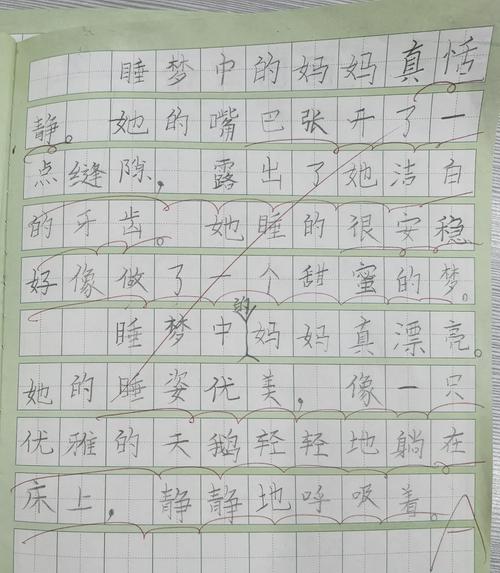 睡梦中的妈妈真恬
静。她的嘴巴张开了一
点缝隙，露出了她洁白
的牙齿。她睡的很安稳
好像做了一个甜蜜的梦。
睡梦中的妈妈真漂亮。
她的睡姿优美，像一只
优雅的天鹅轻轻地躺在
床上，静静地呼吸着。
A